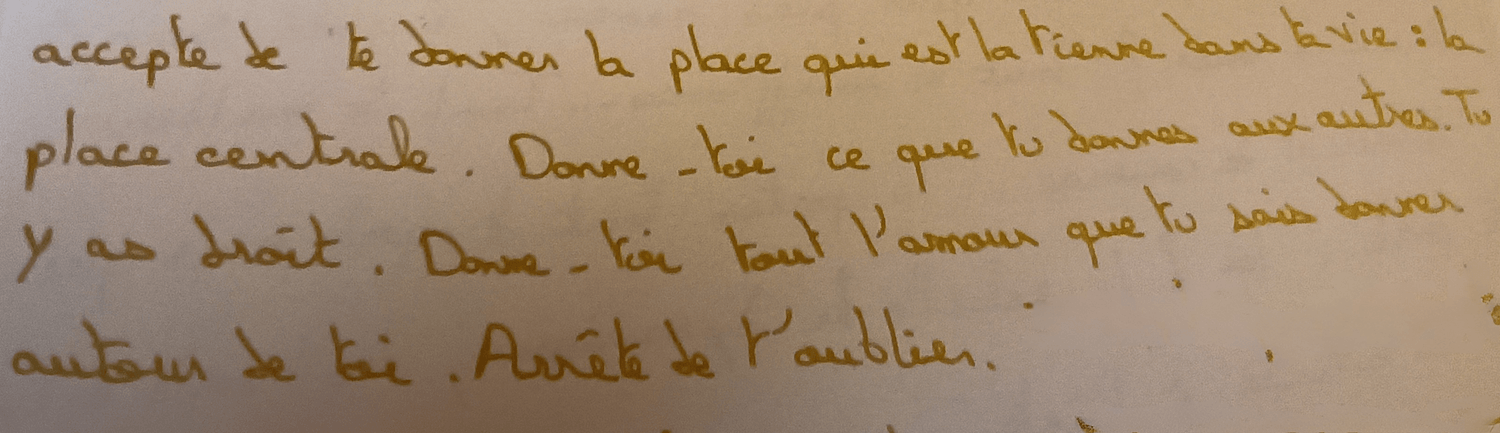 accepte de te donner la place qui est la tienne dans ta vie : la
place centrale. Donne-toi ce que tu donnes aux autres. Tu
y as droit. Donne-toi tout l'amour que tu sais donner
autour de toi. Arrête de t'oublier.